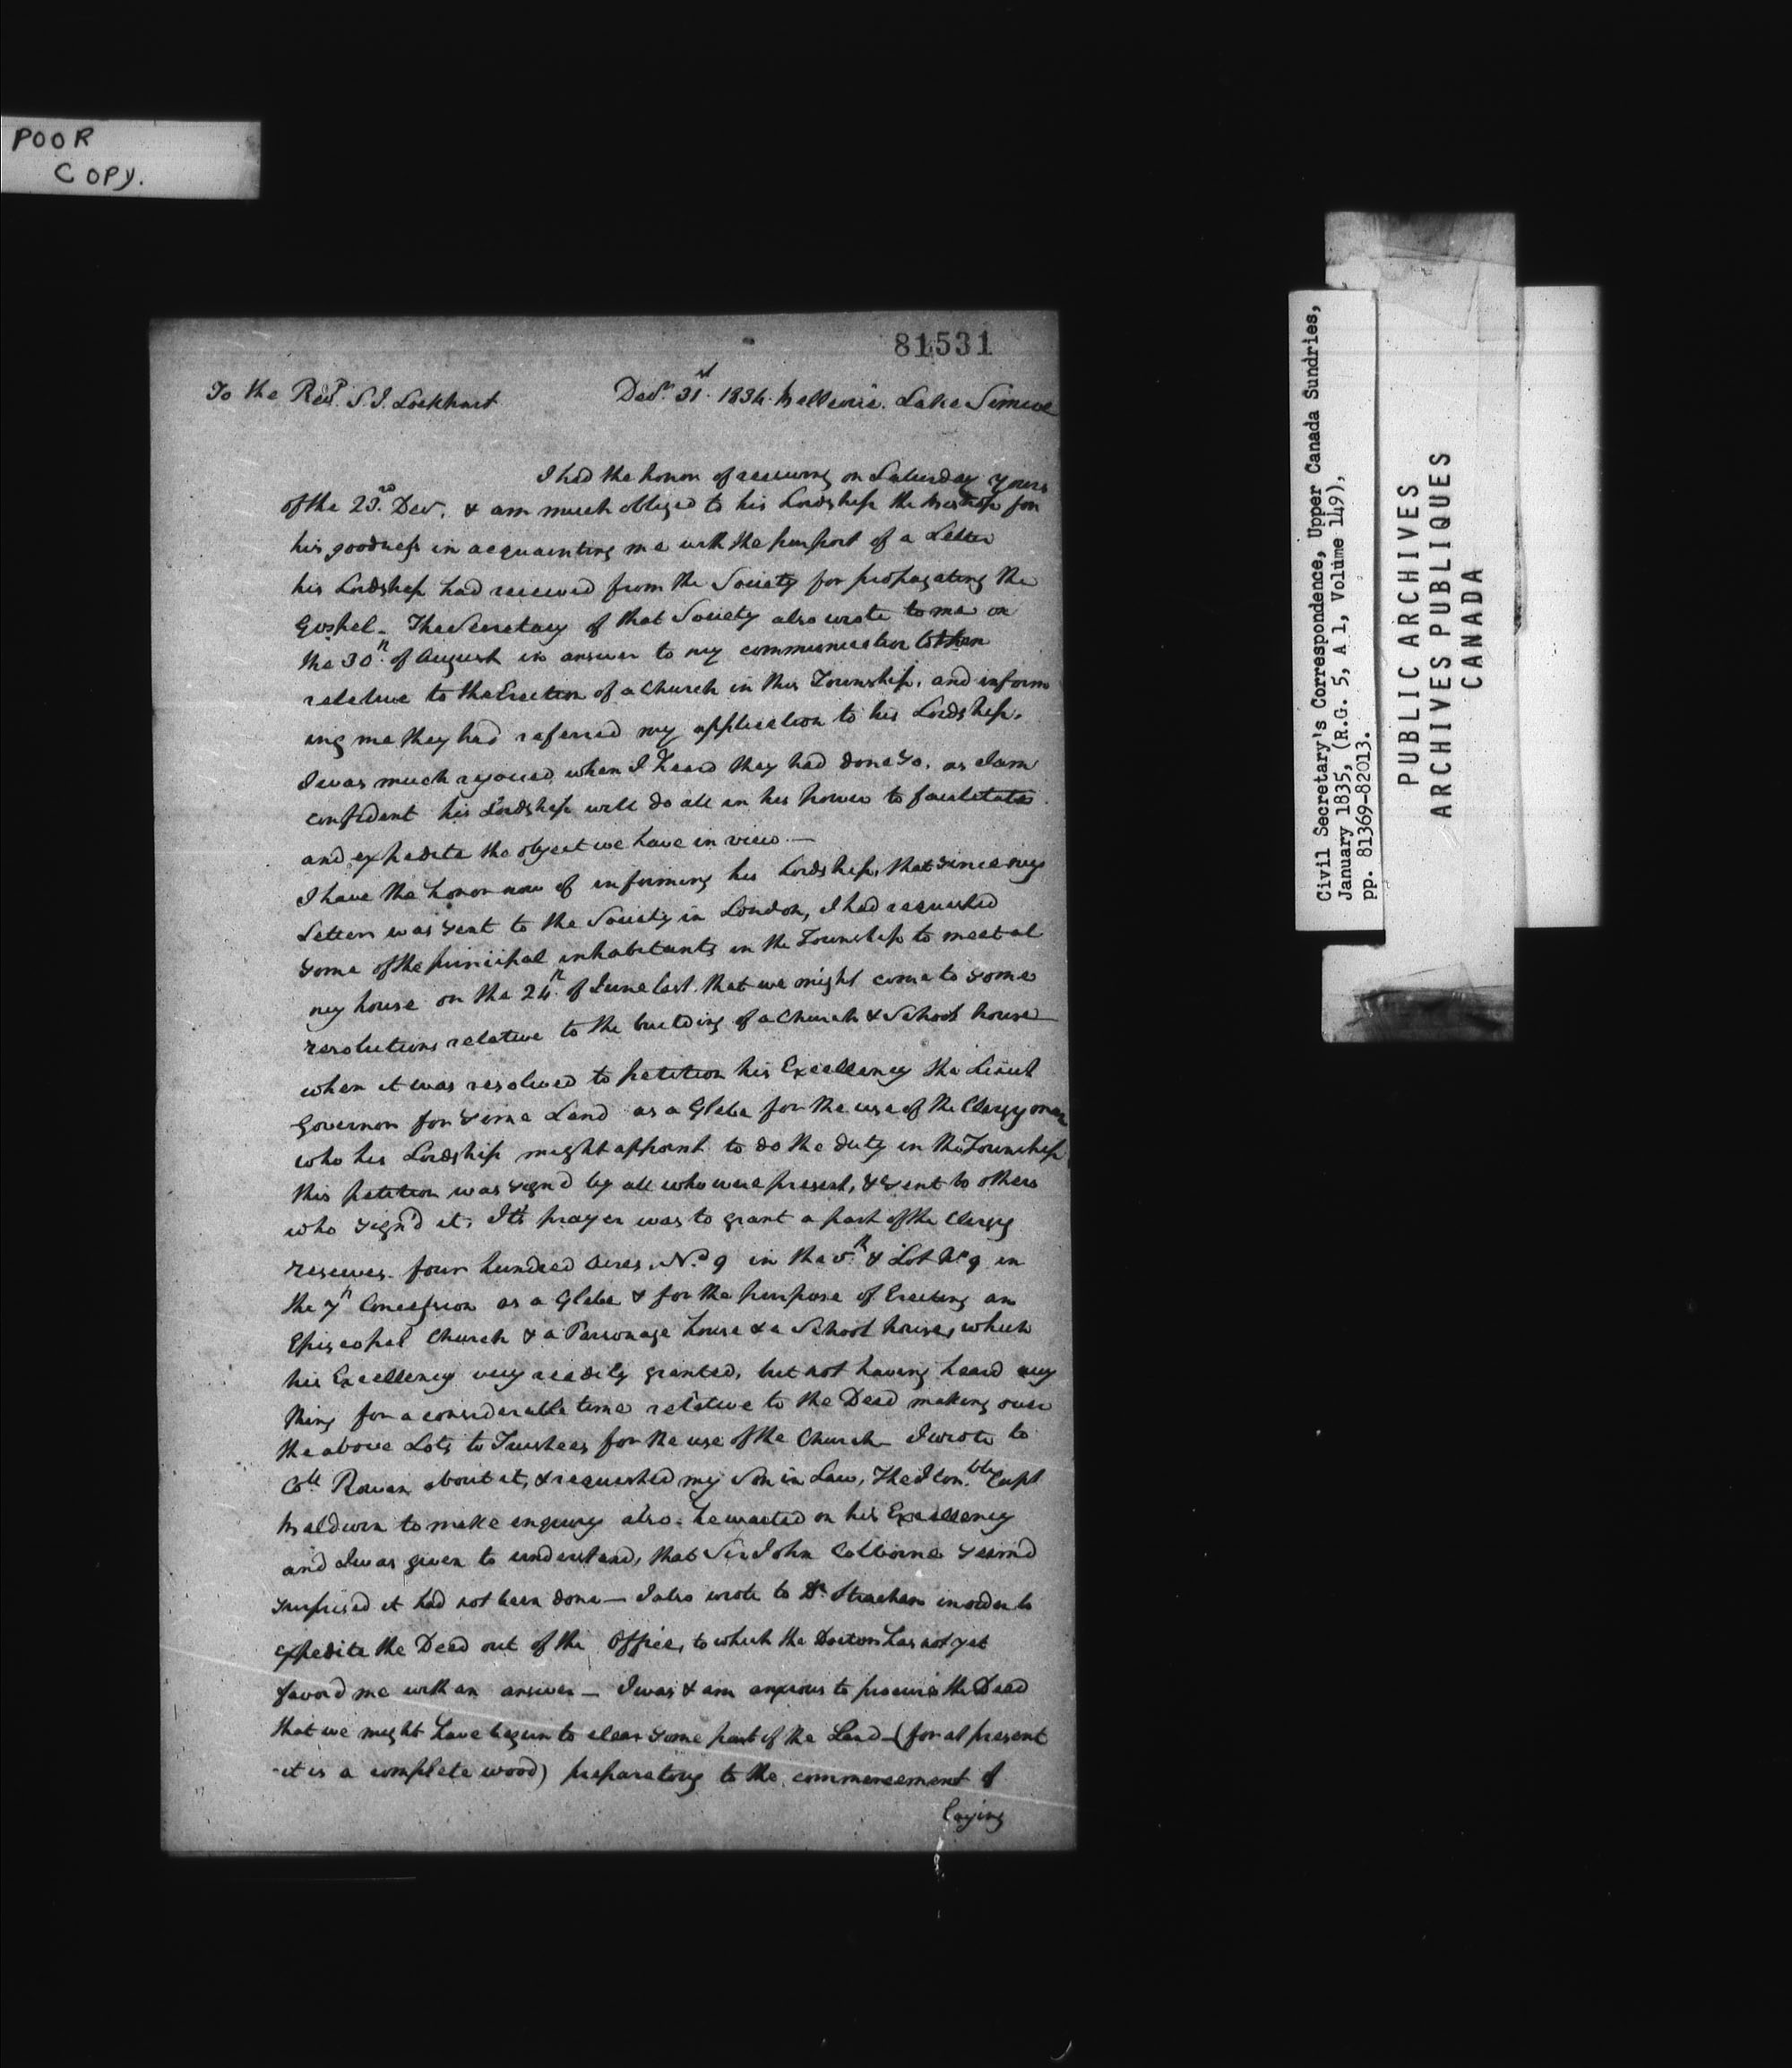 POOR
COPY.
81531
To the Revd. S. J. Lockhart Decr. 31st. 1834. Bellevüe. Lake Simcoe
I had the honor of receiving on Saturday yours
of the 23rd. Decr. & am much obliged to his Lordship the Bishop for
his goodness in acquainting me with the purport of a Letter
his Lordship had received from the Society for propagating the
Gospel. The Secretary of that Society also wrote to me on
the 30th. of August in answer to my communication to them
relative to the Erection of a Church in this Township, and inform
ing me they had referred my application to his Lordship.
I was much rejoiced when I heard they had done so, as I am
confident his Lordship will do all in his power to facilitate
and expedite the object we have in view —
I have the honor now of informing his Lordship, that since my
Letter was sent to the Society in London, I had requested
some of the principal inhabitants in the Township to meet at
my house on the 24th. of June last. that we might come to some
resolutions relative to the building of a Church & School house
when it was resolved to petition his Excellency the Lieut
Governor for some Land as a Glebe for the use of the Clergyman
who his Lordship might appoint to do the duty in the Township
this petition was sign'd by all who were present, & sent to others
who sign'd it. Its prayer was to grant a part of the Clergy
reserves. four hundred Acres. No. 9 in the 5th. & Lot No 9 in
the 7th Concession as a Glebe & for the purpose of Erecting an
Episcopal Church & a Parsonage house & a School house, which
his Excellency very readily granted, but not having heard any
thing for a considerable time relative to the Deed making over
the above Lots to Trustees for the use of the Church — I wrote to
Coll Rowan about it, & requested my Son in Law, The Honble. Capt
Baldwin to make enquiry also. he waited on his Excellency
and I was given to understand, that Sir John Colborne seem'd
surprised it had not been done — I also wrote to Dr. Strachan in order to
expedite the Deed out of the Office, to which the Doctor has not yet
favord me with an answer — I was & am anxious to procure the Deed
that we might have begun to clear some part of the Land — (for at present
it is a complete wood) preparatory to the commencement of
laying
Civil Secretary's Correspondence, Upper Canada Sundries,
January 1835, (R.G. 5, A 1, Volume 149),
pp. 81369-82013.
PUBLIC ARCHIVES
ARCHIVES PUBLIQUES
CANADA